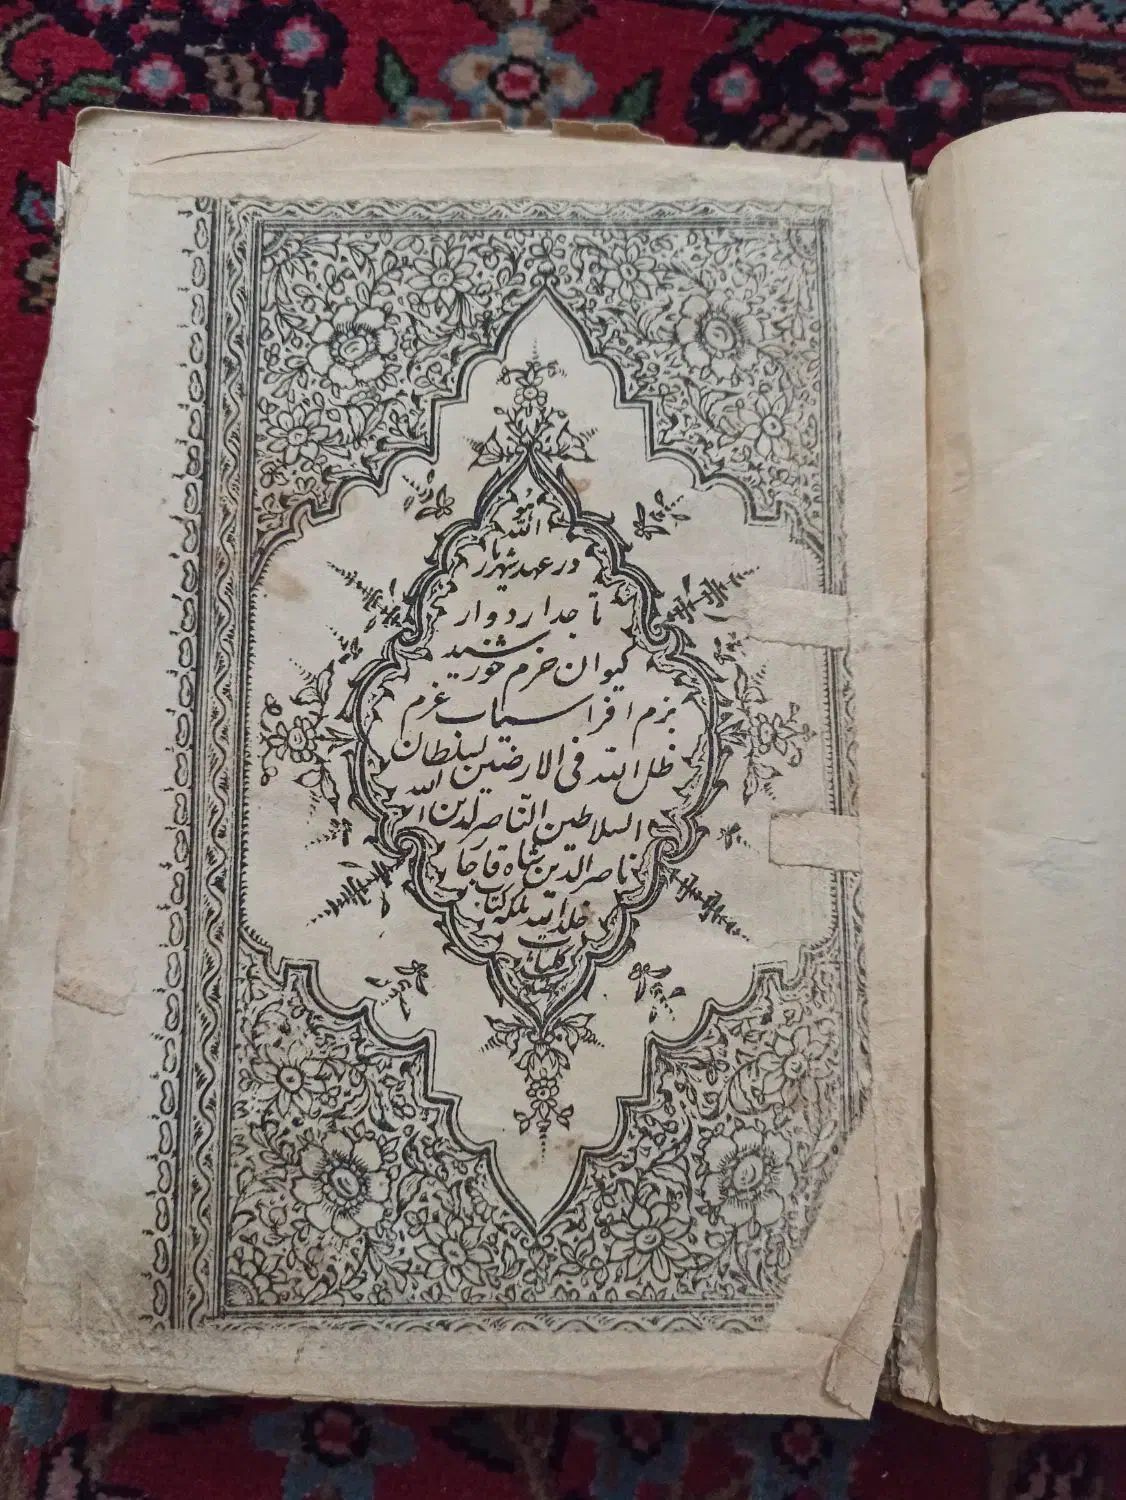 هو
الله
در عهد شهریار
تاجدار دوار
کیوان حزم خورشید
بزم افراسیاب عزم
ظل الله فی الارضین لسلطان
السلاطین الناصر لدین الله
ناصر الدین شاه قاجار
خلد الله ملکه کتاب
کلیات